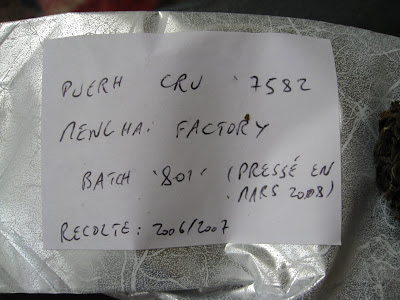 PUERH CRU '7582
MENGHAI FACTORY
BATCH '801' (PRESSÉ EN
MARS 2008)
RECOLTE: 2006/2007